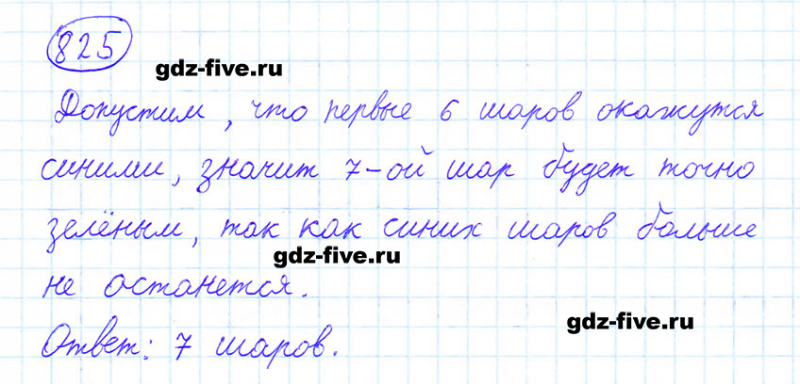 825
gdz-five.ru
Допустим, что первые 6 шаров окажутся
синими, значит 7-ой шар будет точно
зелёным, так как синих шаров больше
gdz-five.ru
не останется.
gdz-five.ru
Ответ: 7 шаров.